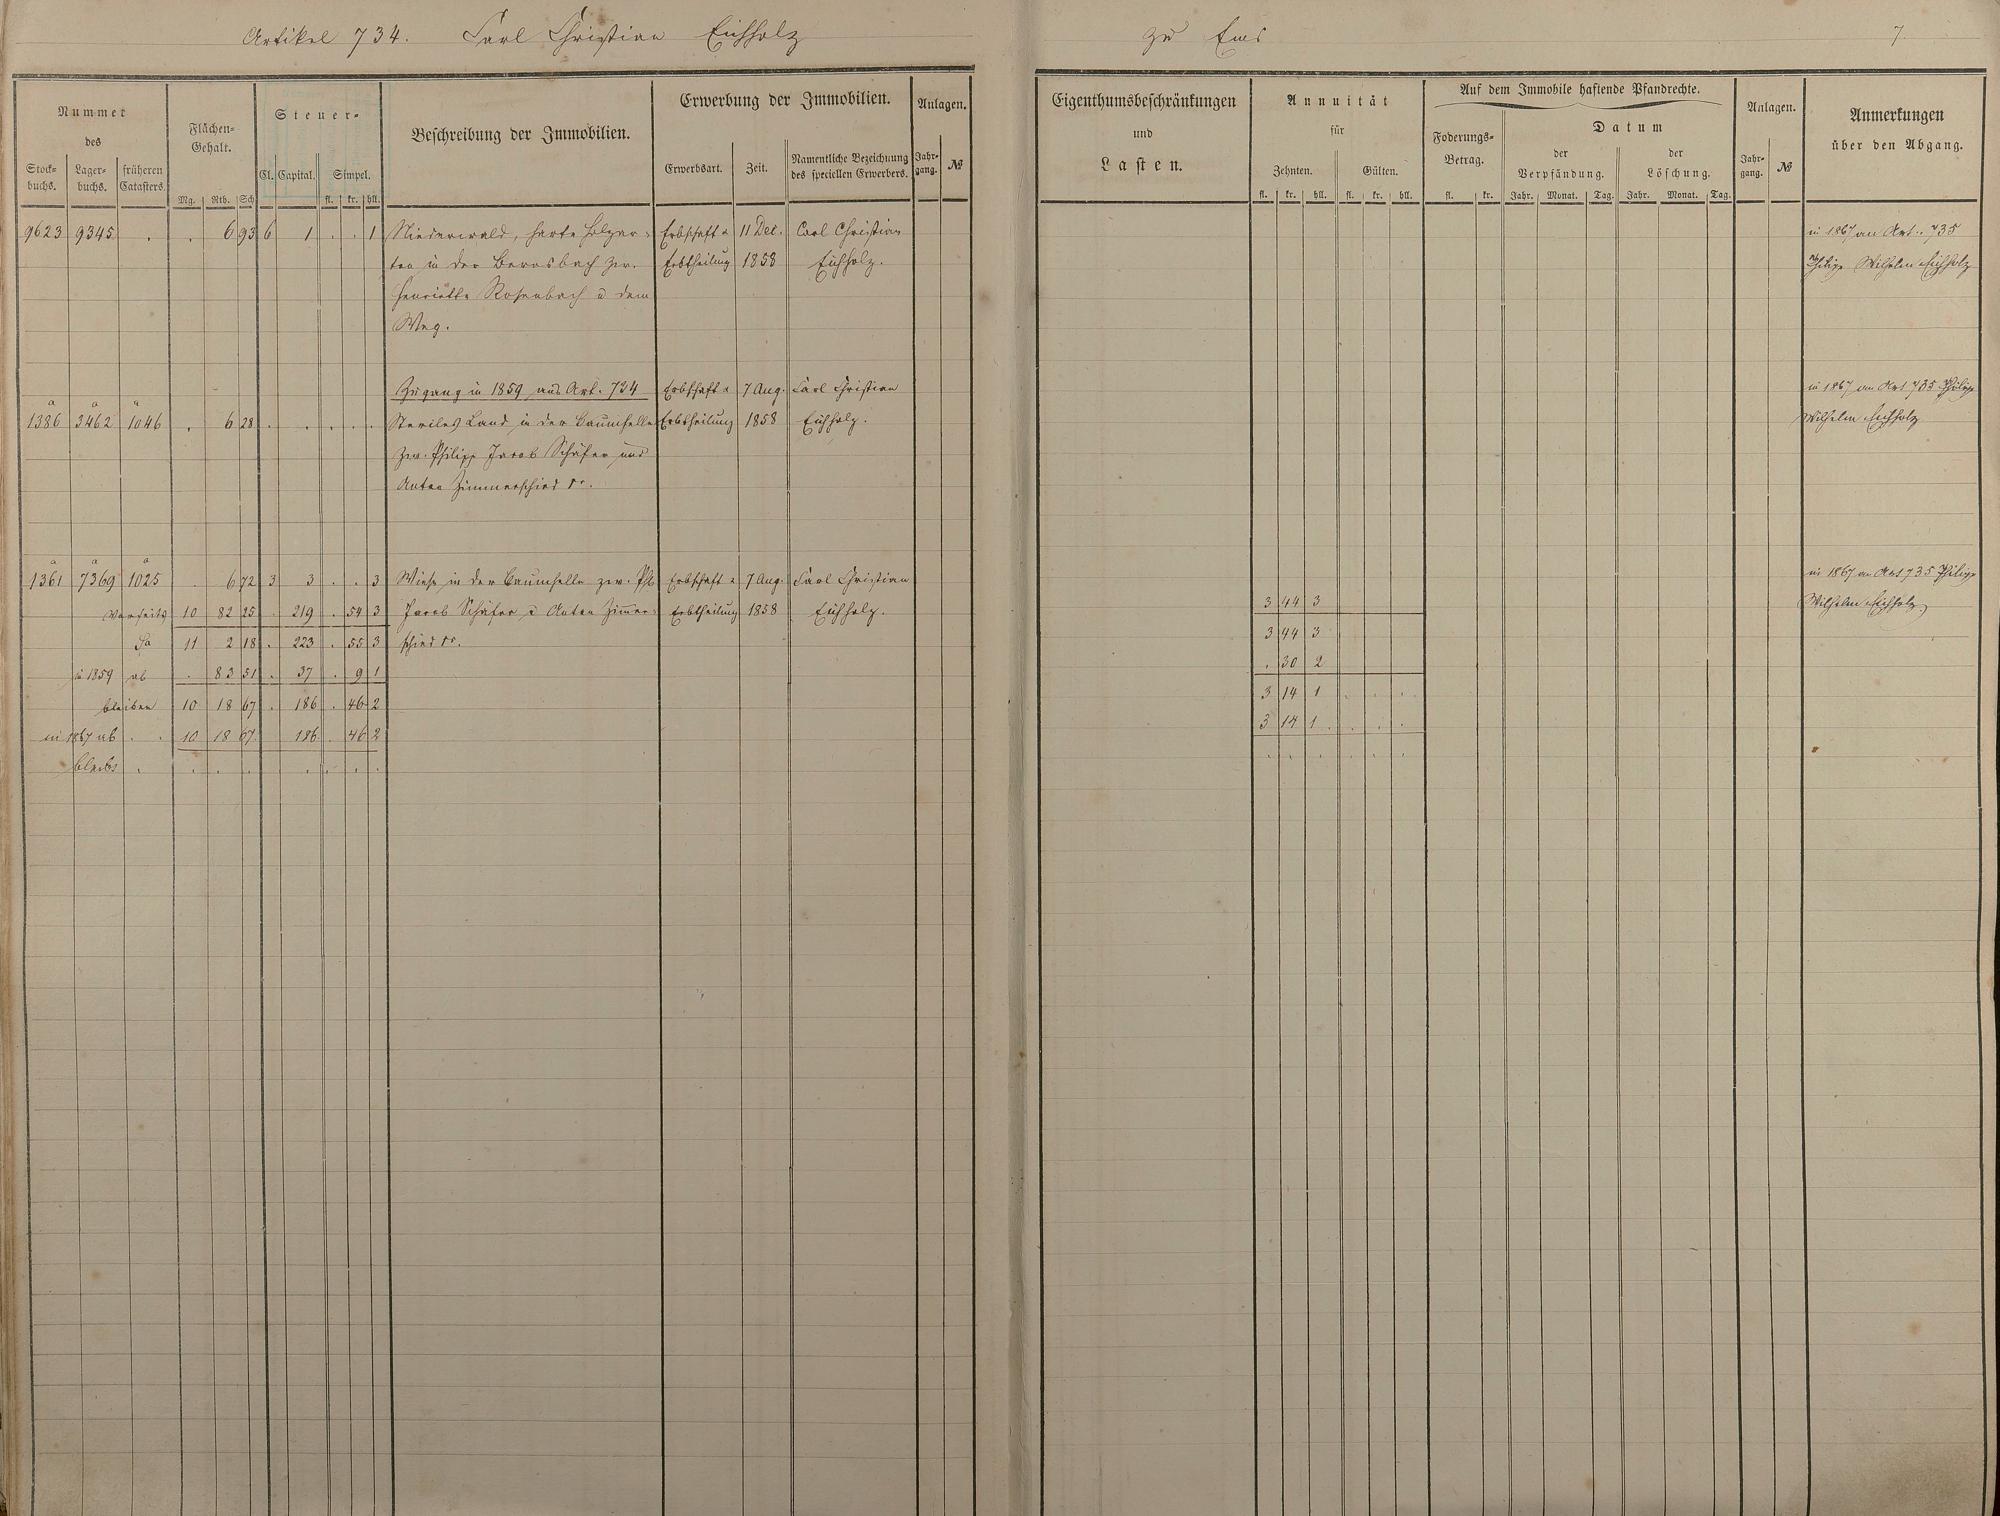 Artikel 734. Carl Christian Eichholz zu Ems 7.
Nummer
des
Stock-
buchs.
Lager-
buchs.
früheren
Catasters.
Flächen-
Gehalt.
Mg. Rth. Sch
Steuer-
Cl. Capital. Simpel.
fl. kr. hll.
Beschreibung der Immobilien.
Erwerbung der Immobilien.
Erwerbsart. Zeit.
Namentliche Bezeichnung
des speciellen Erwerbers.
Anlagen.
Jahr-
gang.
№
Eigenthumsbeschränkungen
und
Lasten.
Annuität
für
Zehnten. Gülten.
fl. kr. hll. fl. kr. hll.
Auf dem Immobile haftende Pfandrechte.
Foderungs-
Betrag.
fl. kr.
Datum
der
Verpfändung.
Jahr. Monat. Tag.
der
Löschung.
Jahr. Monat. Tag.
Anlagen.
Jahr-
gang.
№
Anmerkungen
über den Abgang.
9623 9345 . . 6 93 6 1 . . 1 Niederwald, harte Holzar- Erbschaft u 11 Dec. Carl Christian in 1867 an Art. 735
ten in der Bernsbach zw. Erbtheilung 1858 Eichholz. Philipp Wilhelm Eichholz
Henriette Rosenbach u dem
Weg.
Zugang in 1859 aus Art. 724 Erbschaft u 7 Aug. Carl Christian in 1867 an Art 735 Philipp
a a a
1386 3462 1046 . 6 28 . . . . . Steriles Land in der Baumhelle Erbtheilung 1858 Eichholz. Wilhelm Eichholz
zw. Philipp Jacob Schäfer und
Anton Zimmerschied sr.
a a a
1361 7369 1025 . 6 72 3 3 . . 3 Wiese in der Baumhelle zw. Phl Erbschaft u 7 Aug. Carl Christian in 1867 an Art 735 Philipp
Vorseits 10 82 25 . 219 . 54 3 Jacob Schäfer u Anton Zimmer- Erbtheilung 1858 Eichholz. 3 44 3 Wilhelm Eichholz
Sa 11 2 18 . 223 . 55 3 schied sr. 3 44 3
in 1859 ab . 83 51 . 37 . 9 1 . 30 2
bleiben 10 18 67 . 186 . 46 2 3 14 1 . . .
in 1867 ab . . 10 18 67 . 186 . 46 2 3 14 1 . . . .
bleibt . . . . . . . . . . . . . .